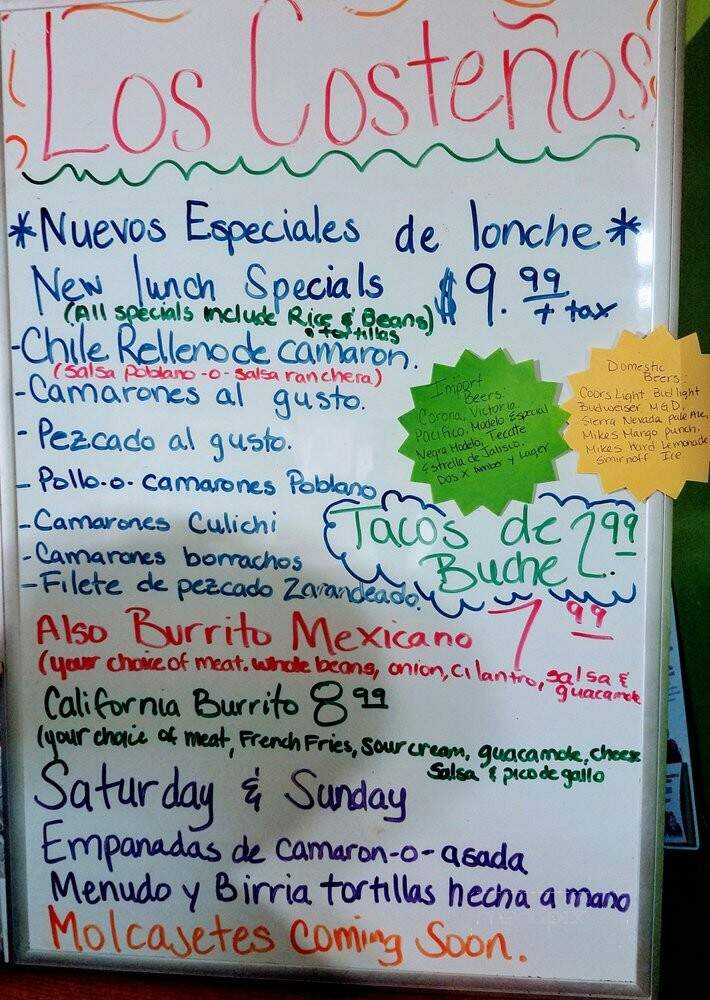 Los Costeños
*Nuevos Especiales de lonche*
New lunch Specials $9.99 + tax
(All specials include Rice & Beans)
& tortillas
-Chile Relleno de camaron.
(Salsa Poblano -o- salsa ranchera)
-Camarones al gusto.
- Pezcado al gusto.
- Pollo-o-camarones Poblano
-Camarones Culichi
-Camarones borrachos
-Filete de pezcado Zarandeado.
Import
Beers:
Corona, Victoria
Pacifico, Modelo Especial
Negra Modelo, Tecate
Estrella de Jalisco.
Dos X Amber y Lager
Domestic
Beers.
Coors Light Bud light
Budweiser MGD.
Sierra Nevada pale Ale,
Mikes Mango punch,
Mikes Hard Lemonade
Smirnoff Ice
Tacos de 2.99
Buche
Also Burrito Mexicano 7.99
(your choice of meat. whole beans, onion, cilantro, salsa &
guacamole
California Burrito 8 99
(your choice of meat, French Fries, Sour cream, guacamole, cheese
Salsa & pico de gallo
Saturday & Sunday
Empanadas de camaron-o-asada
Menudo y Birria tortillas hecha a mano
Molcajetes Coming Soon.